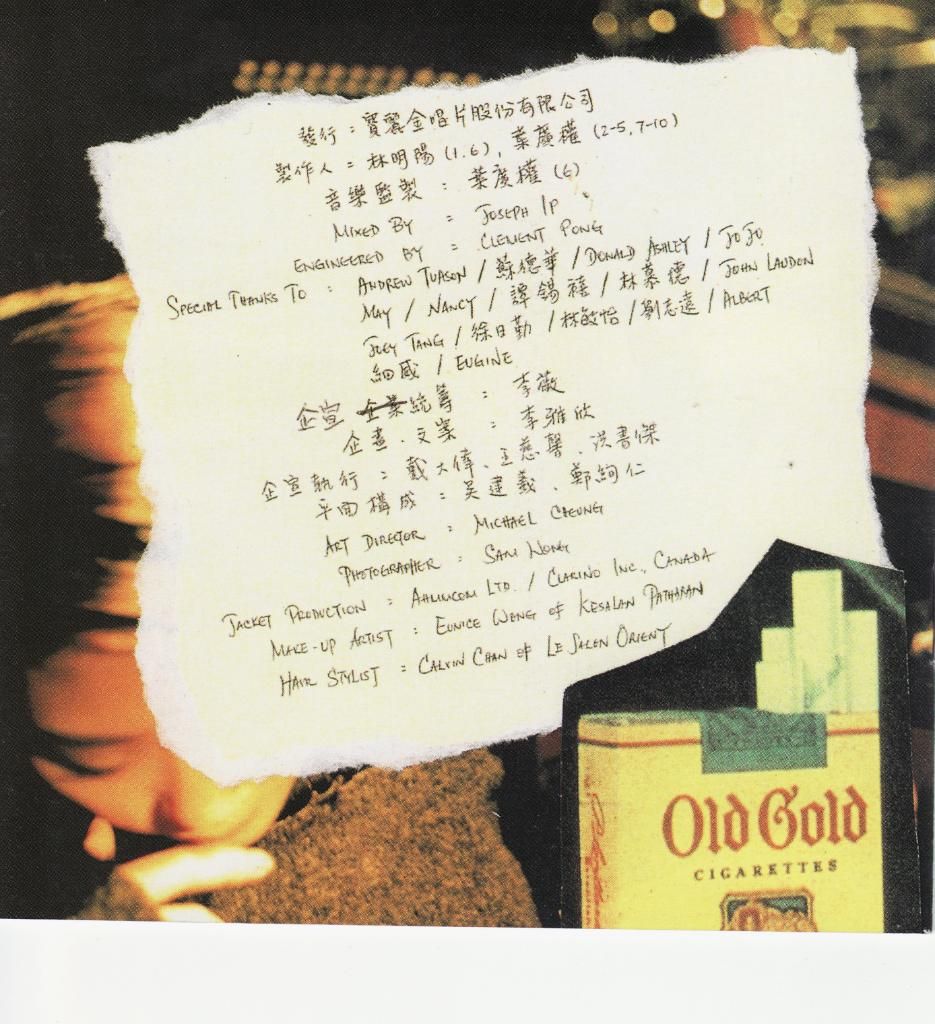 發行：寶麗金唱片股份有限公司
製作人：林明陽 (1.6), 葉廣權 (2-5, 7-10)
音樂監製：葉廣權 (6)
MIXED BY : JOSEPH IP
ENGINEERED BY : CLEMENT PONG
SPECIAL THANKS TO : ANDREW TUASON / 蘇德華 / DONALD ASHLEY / JOJO
MAY / NANCY / 譚錫禧 / 林慕德 / JOHN LAUDON
JOEY TANG / 徐日勤 / 林敏怡 / 劉志遠 / ALBERT
細威 / EUGINE
企宣統籌：李薇
企畫．文案：李雅欣
企宣執行：戴大偉、王慈馨、洪書傑
平面構成：吳建義、鄭絢仁
ART DIRECTOR : MICHAEL CHEUNG
PHOTOGRAPHER : SAM WONG
JACKET PRODUCTION : AHLUUCOM LTD. / CLARINO INC., CANADA
MAKE-UP ARTIST : EUNICE WONG OF KESALAN PATHARAN
HAIR STYLIST : CALVIN CHAN OF LE SALON ORIENT
Old Gold
CIGARETTES